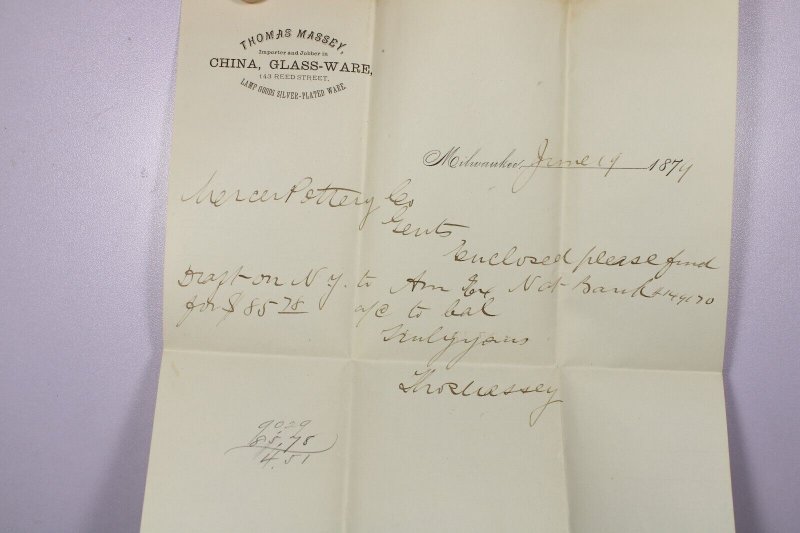 THOMAS MASSEY,
Importer and Jobber in
CHINA, GLASS-WARE,
143 REED STREET.
LAMP GOODS SILVER-PLATED WARE.
Milwaukee, June 19 1879
Mercer Pottery Co
Gents
Enclosed please find
Draft on N Y. to Am Ex Nat Bank
for $85 78 a/c to bal
Truly yours
Thos Massey
90 29
85,78
4.51